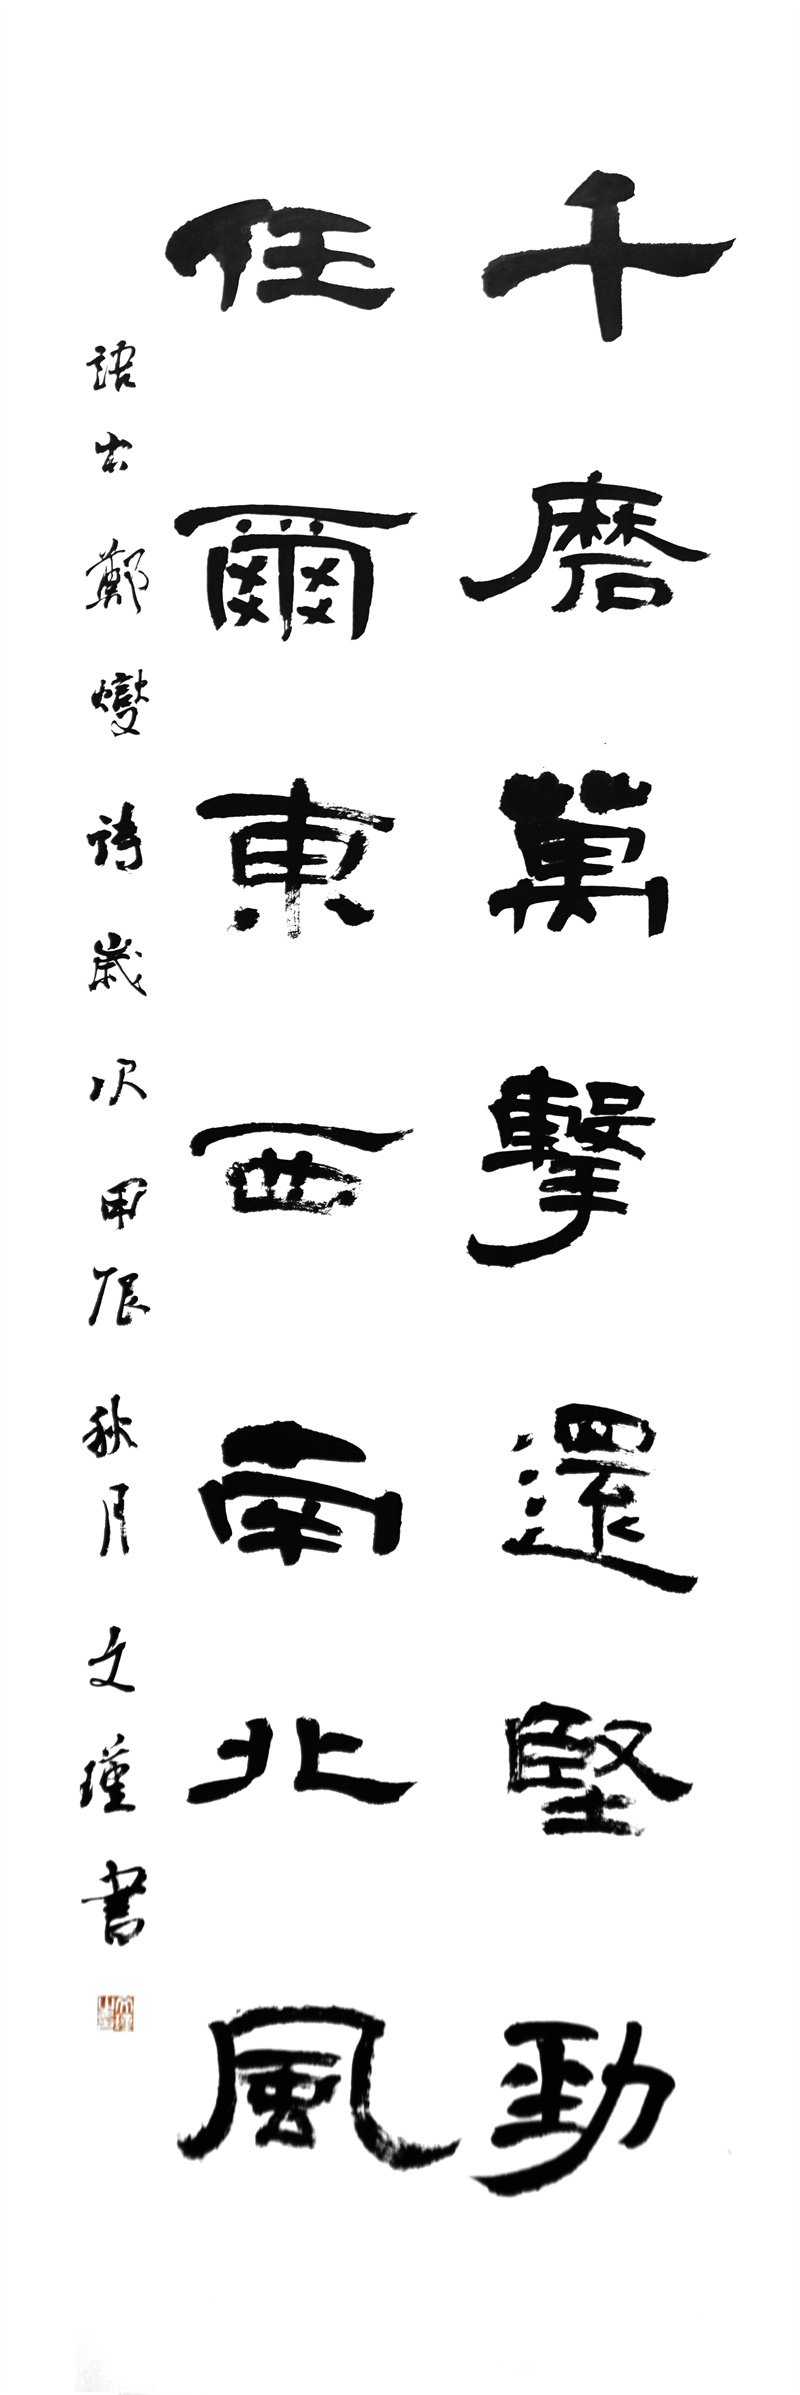 千磨萬擊還堅勁
任爾東西南北風
語出鄭燮詩歲次甲辰秋月文瑾書